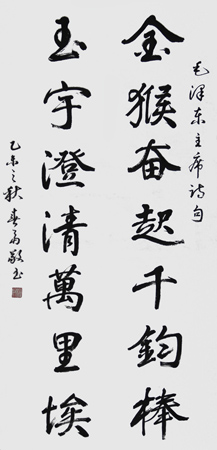 毛泽东主席诗句
金猴奋起千鈞棒
玉宇澄清萬里埃
乙未之秋春